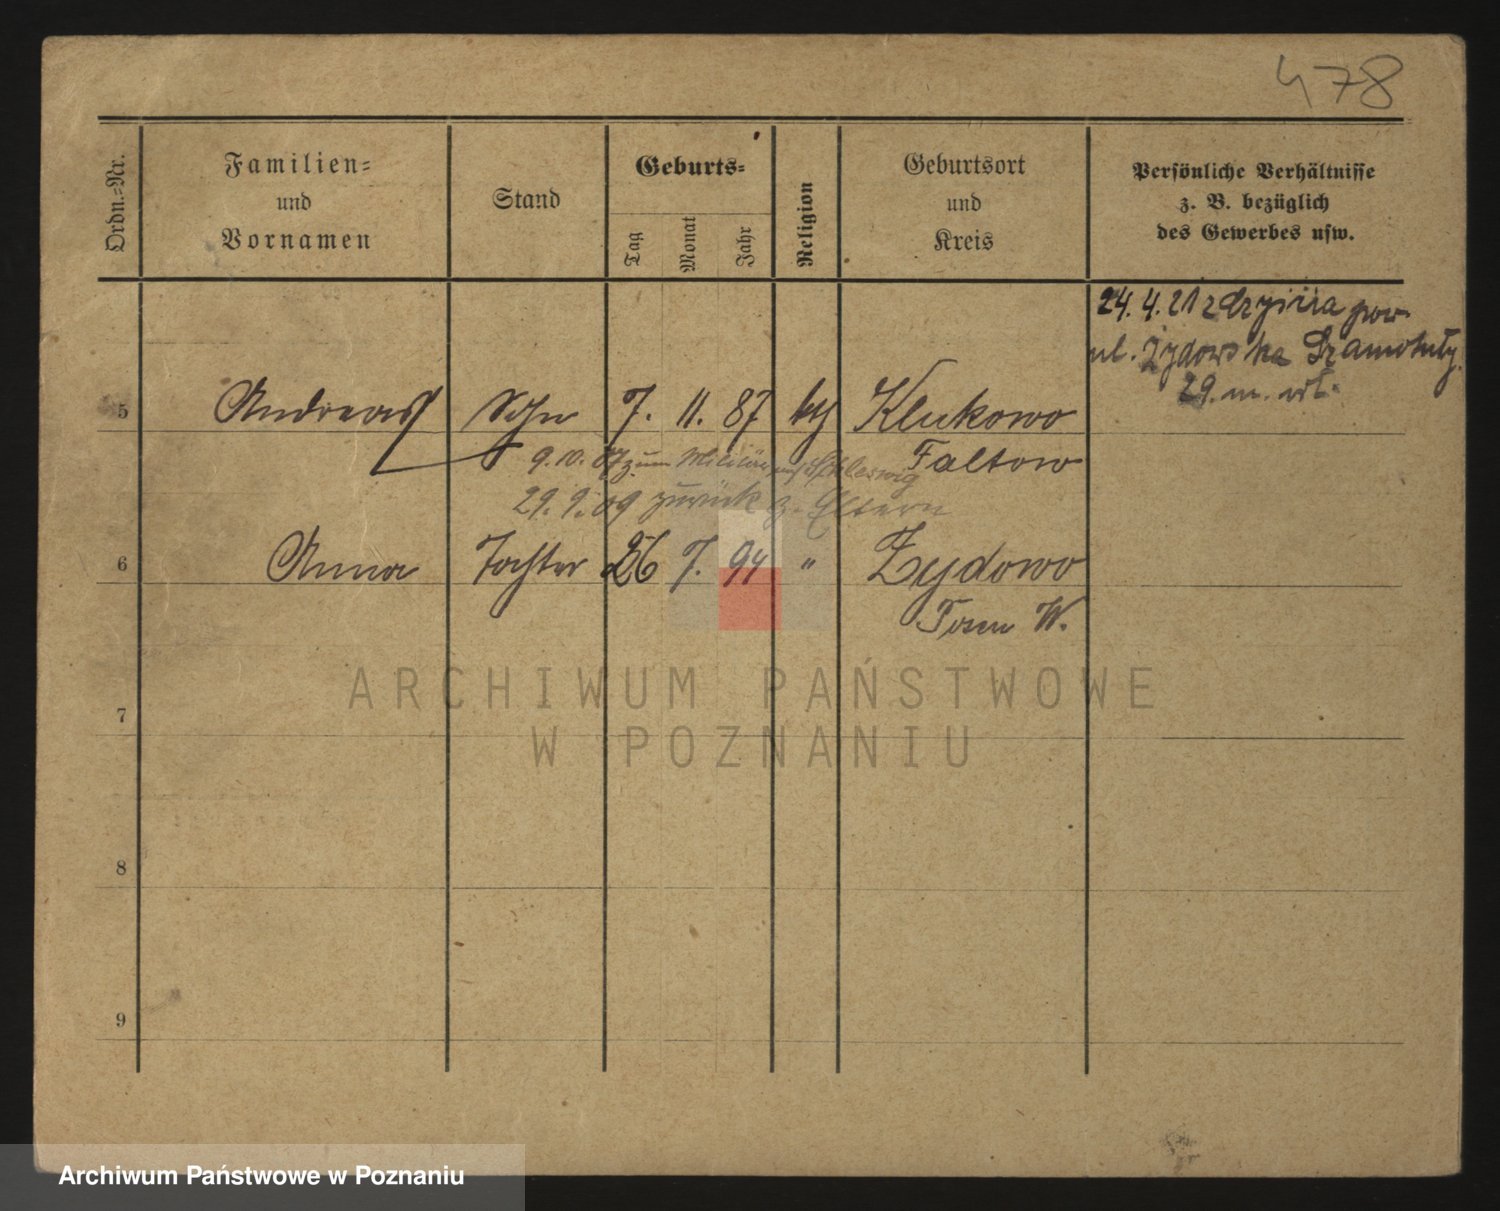 478
Ordn.-Nr.
Familien-
und
Vornamen
Stand
Geburts-
Tag
Monat
Jahr
Religion
Geburtsort
und
Kreis
Persönliche Verhältnisse
z. B. bezüglich
des Gewerbes usw.
24. 4. 21 z pow.
ul. Żydowska Szamotuły
29. m. wł.
5 Andreas Sohn 7. 11. 87 kth Klukowo
Faltow
9. 10. 07 zum Militär nach Schleswig
29. 9. 09 zurück z. Eltern
6 Anna Tochter 26 7. 94 " Zydowo
Posen W.
7
ARCHIWUM PAŃSTWOWE
W POZNANIU
8
9
Archiwum Państwowe w Poznaniu